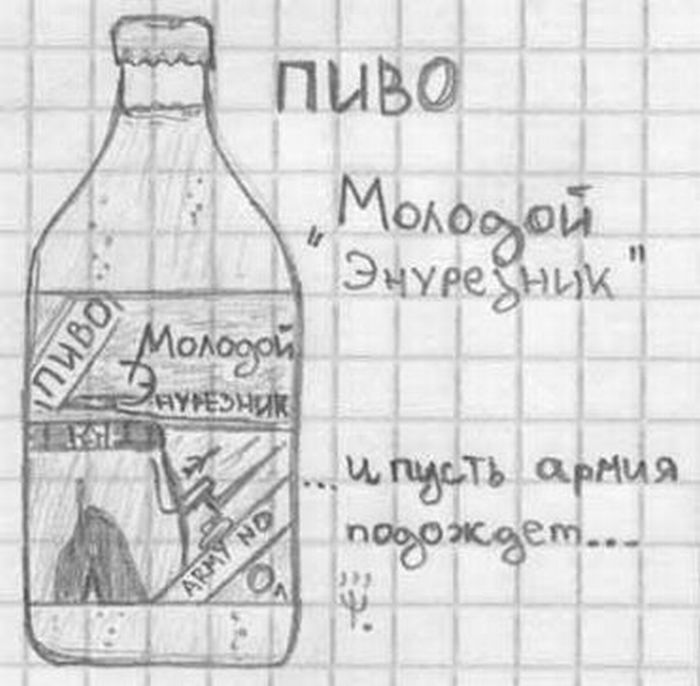 ПИВО
„Молодой
Энурезник"
ПИВО
Молодой
Энурезник
...и пусть армия
подождет...
ARMY NO